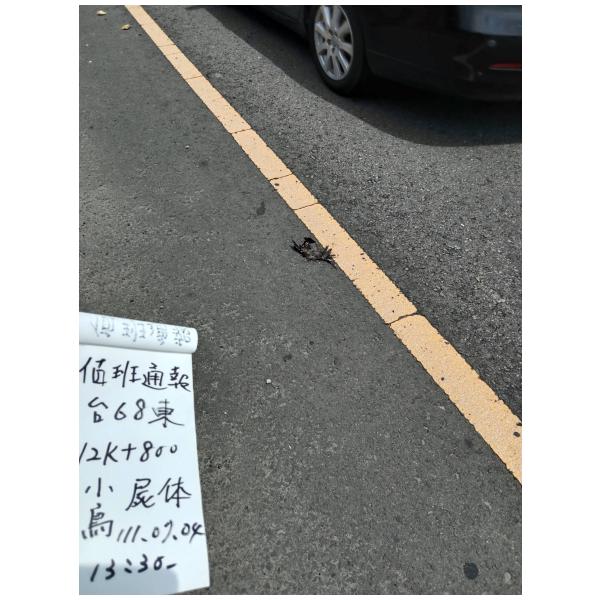 值班通報
台68東
12K+800
小鳥屍体
111.07.04
13:30-